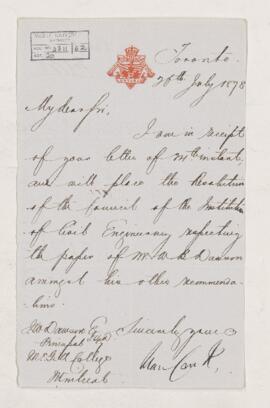 Toronto
26th July 1878
My dear Sir,
I am in receipt
of your letter of instant,
and will place the Resolution
of the Council of the Institution
of Civil Engineers respecting
the paper of Mr W. B. Dawson
amongst his other recommenda-
tions.
Sincerely yours
J W Dawson Esq
Principal
McGill College
Montreal